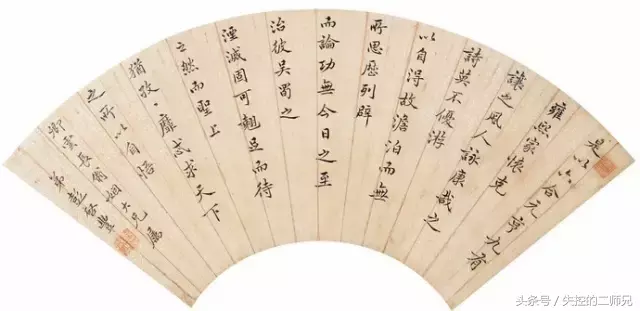 是以六合元亨九有
雍熙家懷克
讓之風人詠康哉之
詩莫不優游
以自得故澹泊而無
所思歷列辟
而論功無今日之至
治彼吳蜀之
湮滅固可翹足而待
之然而聖上
猶孜〻靡忒求天下
之所以自悟
卿雲長 相大兄屬
弟彭啓豐
头条号 / 失控的二师兄